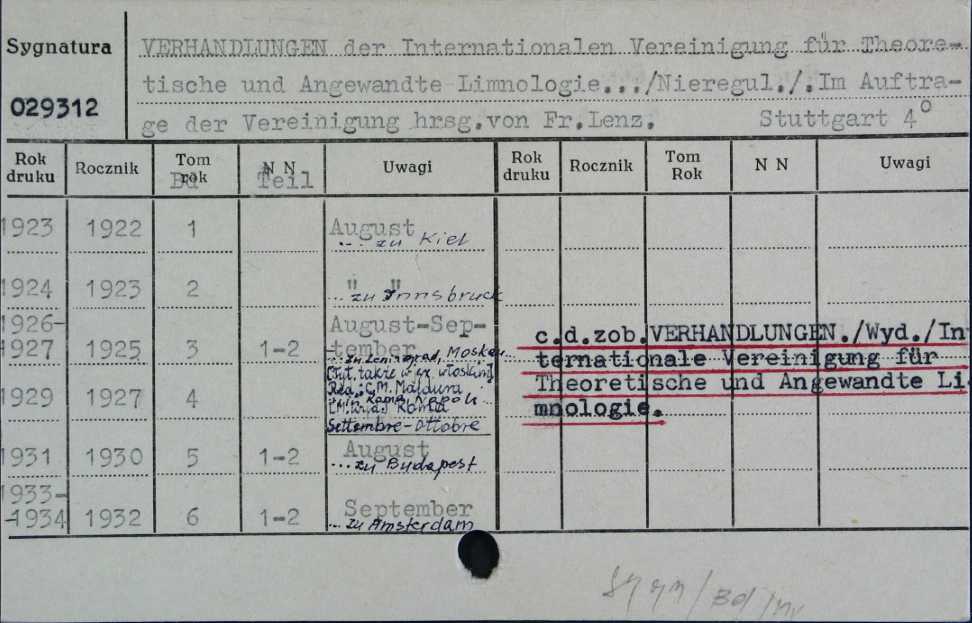 Sygnatura
029312
VERHANDLUNGEN der Internationalen Vereinigung für Theore-
tische und Angewandte Limnologie.../Nieregul./.Im Auftra-
ge der Vereinigung hrsg.von Fr.Lenz. Stuttgart 4°
Rok druku Rocznik Tom rok Bd N N Teil Uwagi Rok druku Rocznik Tom Rok N N Uwagi
1923 1922 1 August
... zu Kiel
1924 1923 2 " "
...zu Innsbruck
1926- August-Sep-
1927 1925 3 1-2 tember
...zu Leningrad, Moskau
1929 1927 4
Red.: C.M. Maldura
Roma
Settembre-Ottobre
1931 1930 5 1-2 August
...zu Budapest
1933-
-1934 1932 6 1-2 September
...zu Amsterdam
c.d.zob.VERHANDLUNGEN./Wyd./In
ternationale Vereinigung für
Theoretische und Angewandte Li
mnologie.